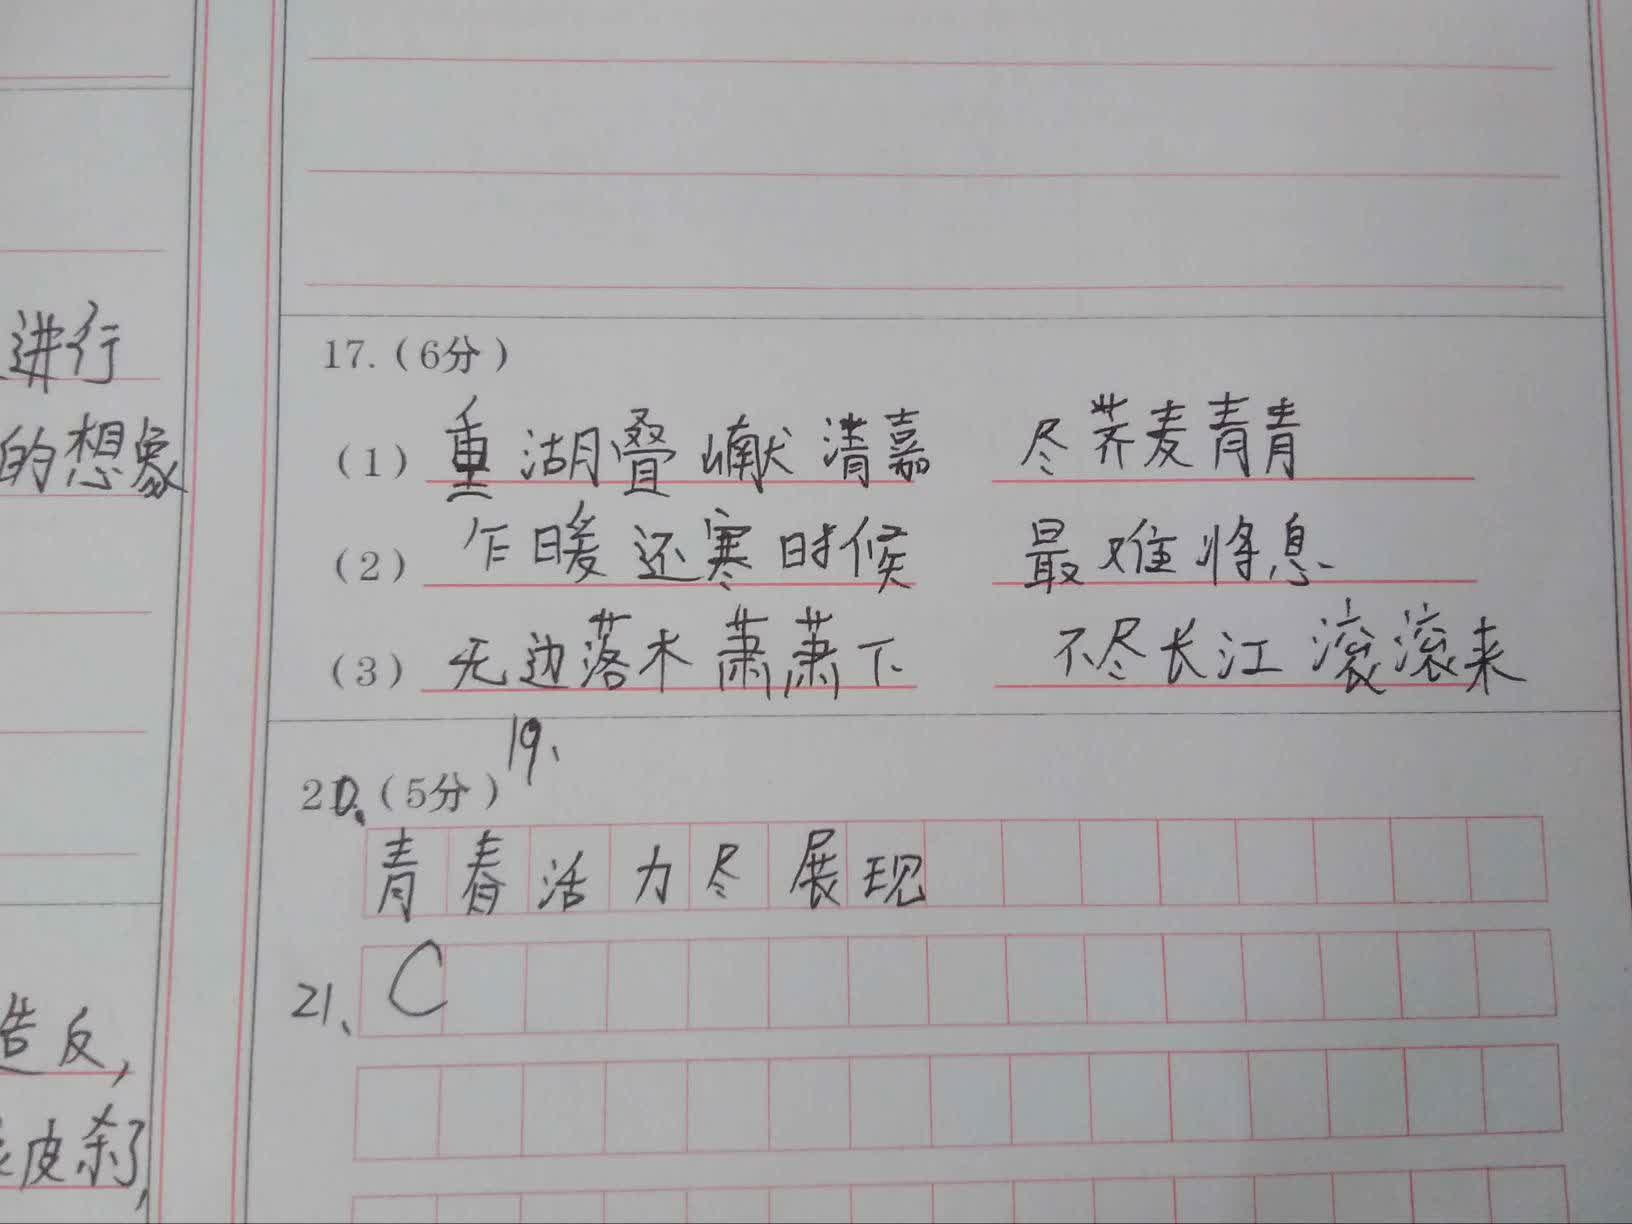 进行
的想象
造反,
皮杀了,
17.(6分)
(1) 重湖叠巘清嘉 尽荠麦青青
(2) 乍暖还寒时候 最难将息
(3) 无边落木萧萧下 不尽长江滚滚来
19、
20.(5分)
青春活力尽展现
21、 C